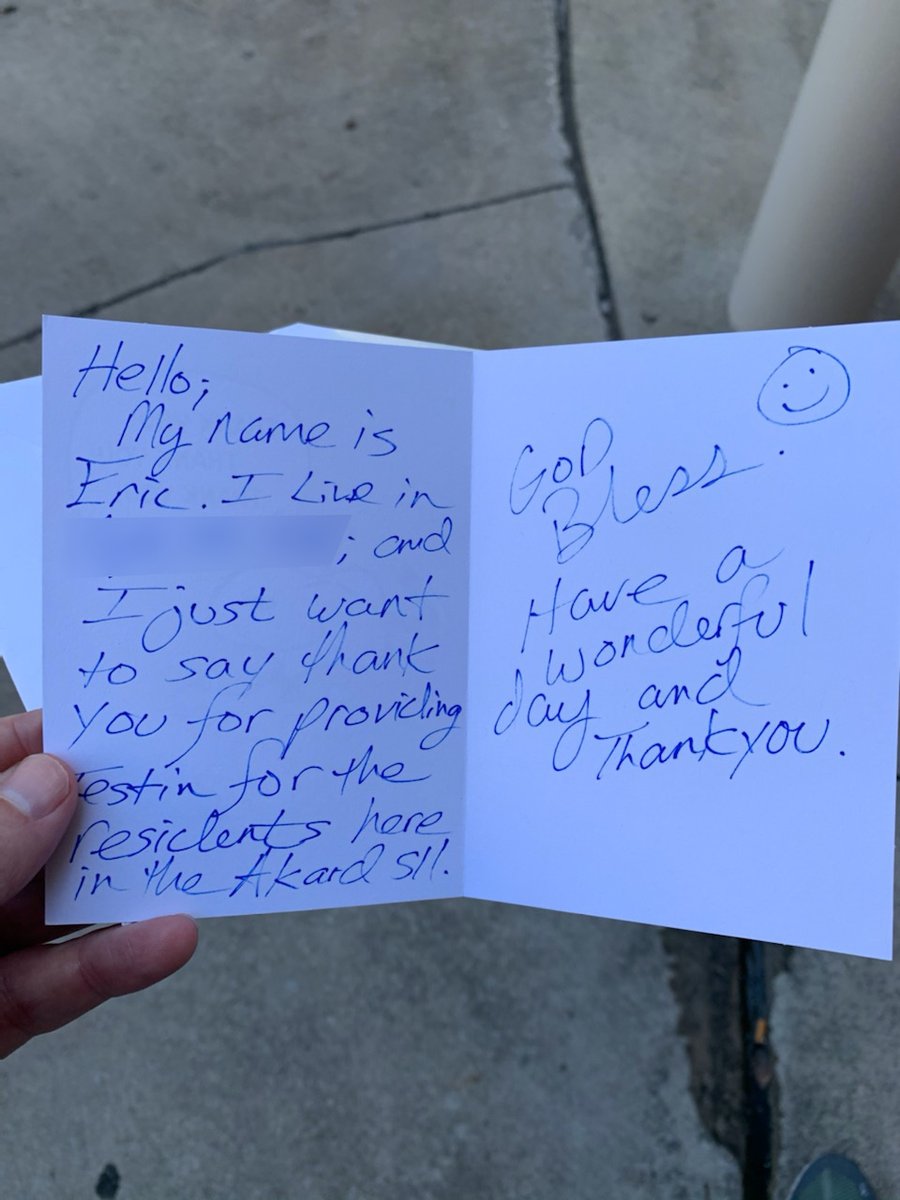 Hello;
My name is
Eric. I Live in
; and
I just want
to say thank
you for providing
Testin for the
residents here
in the Akard 511.
GOD
Bless.
Have a
wonderful
day and
Thankyou.